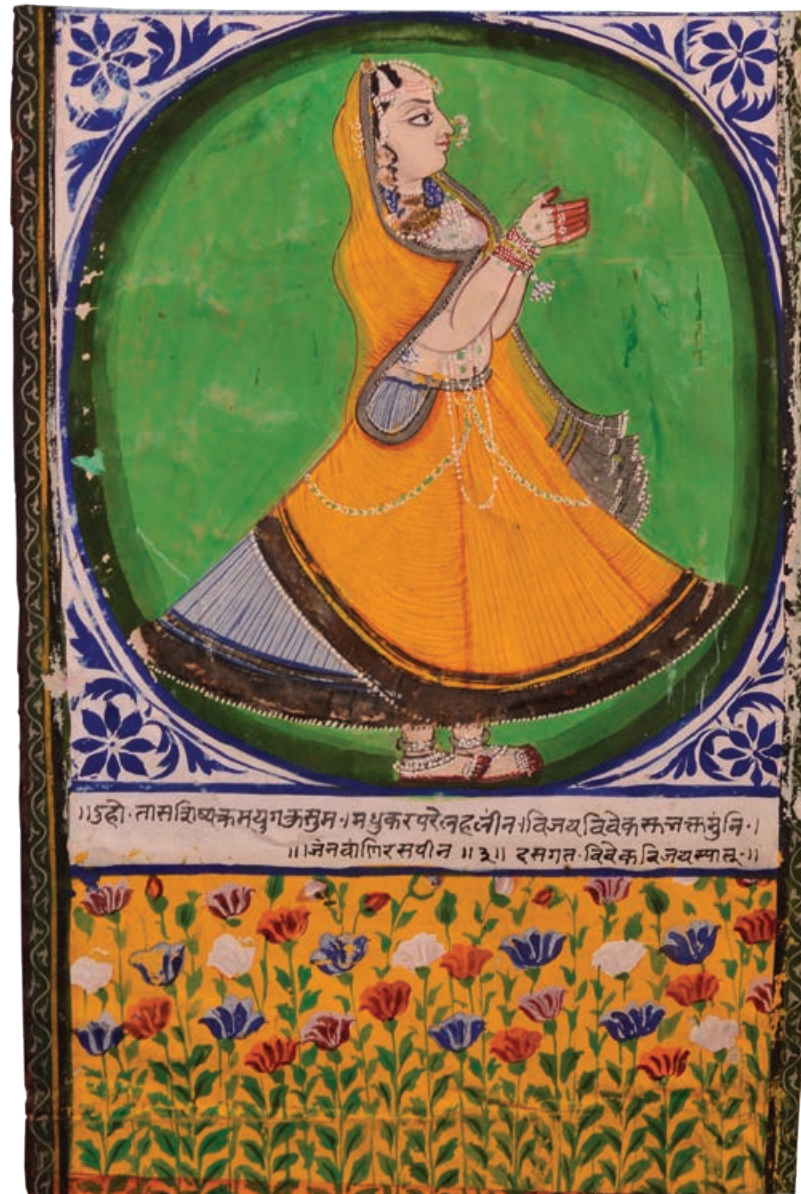 ॥दुहो॰तासशिष्यक्रमयुगकुसुम॰।मधुकरपरेंलहलीन।विजयविवेकसुजसमुनि॰।
॥।जैनवांणिरसपीन॥३॥रसगत॰विवेकविजयस्यालू॰॥